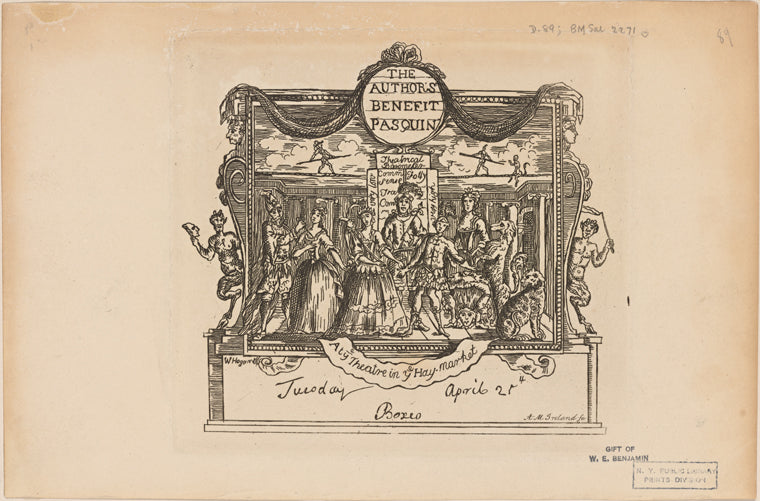 D.89; BM Sat 2271
89
THE
AUTHOR'S
BENEFIT
PASQUIN
Theatrical
Barometer
very low
Comm Folly
sense
Tra
Com
very high
W Hogarth
At ye Theatre in ye Hay-market
Tuesday April 25
Boxes
A. M. Ireland fe
GIFT OF
W. E. BENJAMIN
N. Y. PUBLIC LIBRARY
PRINTS DIVISION